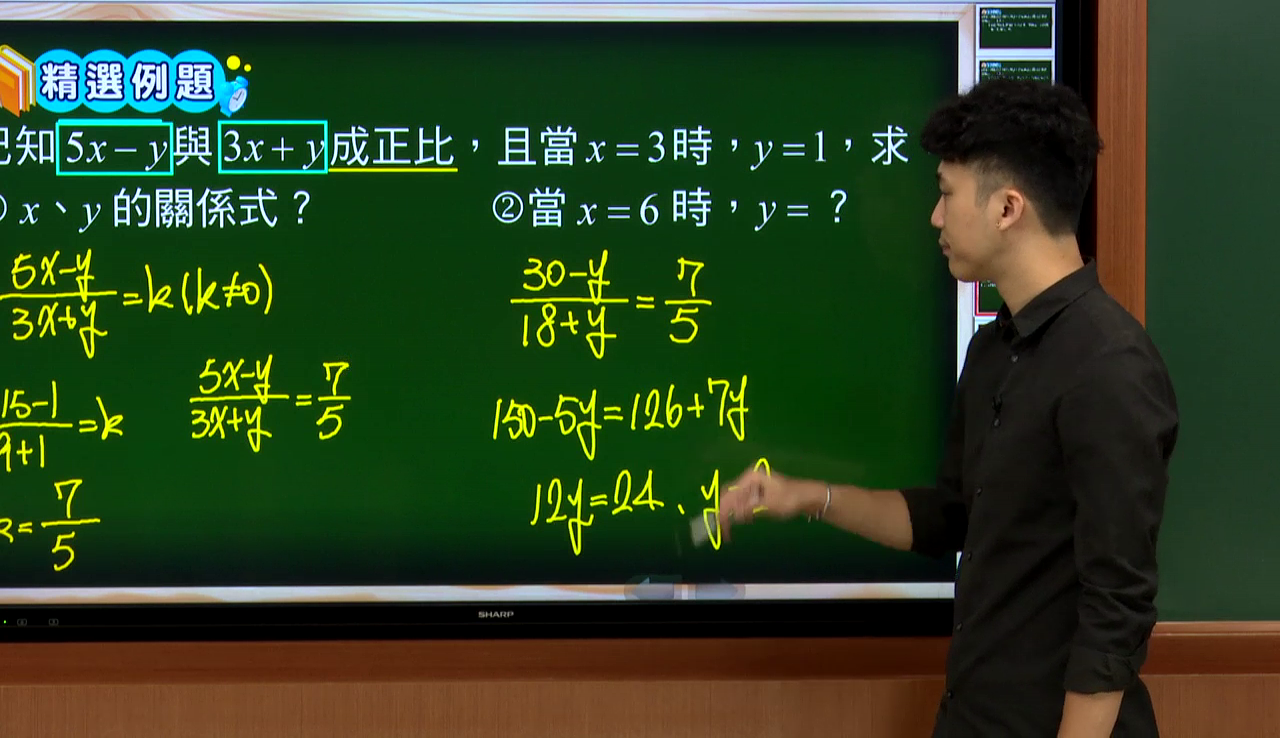 精選例題
已知 5x−y 與 3x+y 成正比，且當 x=3 時，y=1，求
① x、y 的關係式？ ②當 x=6 時，y=？
(5x−y)/(3x+y) = k (k≠0)
(15−1)/(9+1) = k
k = 7/5
(5x−y)/(3x+y) = 7/5
(30−y)/(18+y) = 7/5
150−5y=126+7y
12y=24、y=2
SHARP